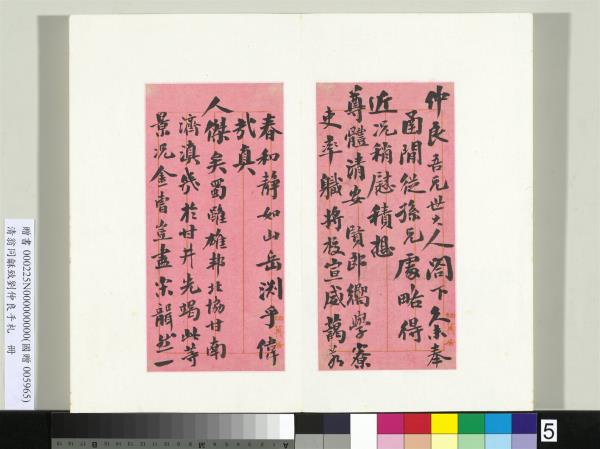 仲良吾兄世大人閣下久未奉
函間從孫兄處略得
近況稍慰積想
尊體清安賢郎嚮學寮
吏率職將校宣威藹若
春和靜如山岳淵乎偉
哉真
人傑矣蜀雖雄邦北協甘南
濟滇幾於甘井先竭此等
景況金曹豈盡然一
贈書 000225N000000000(國贈 005965)
清翁同龢致劉仲良手札 冊
5